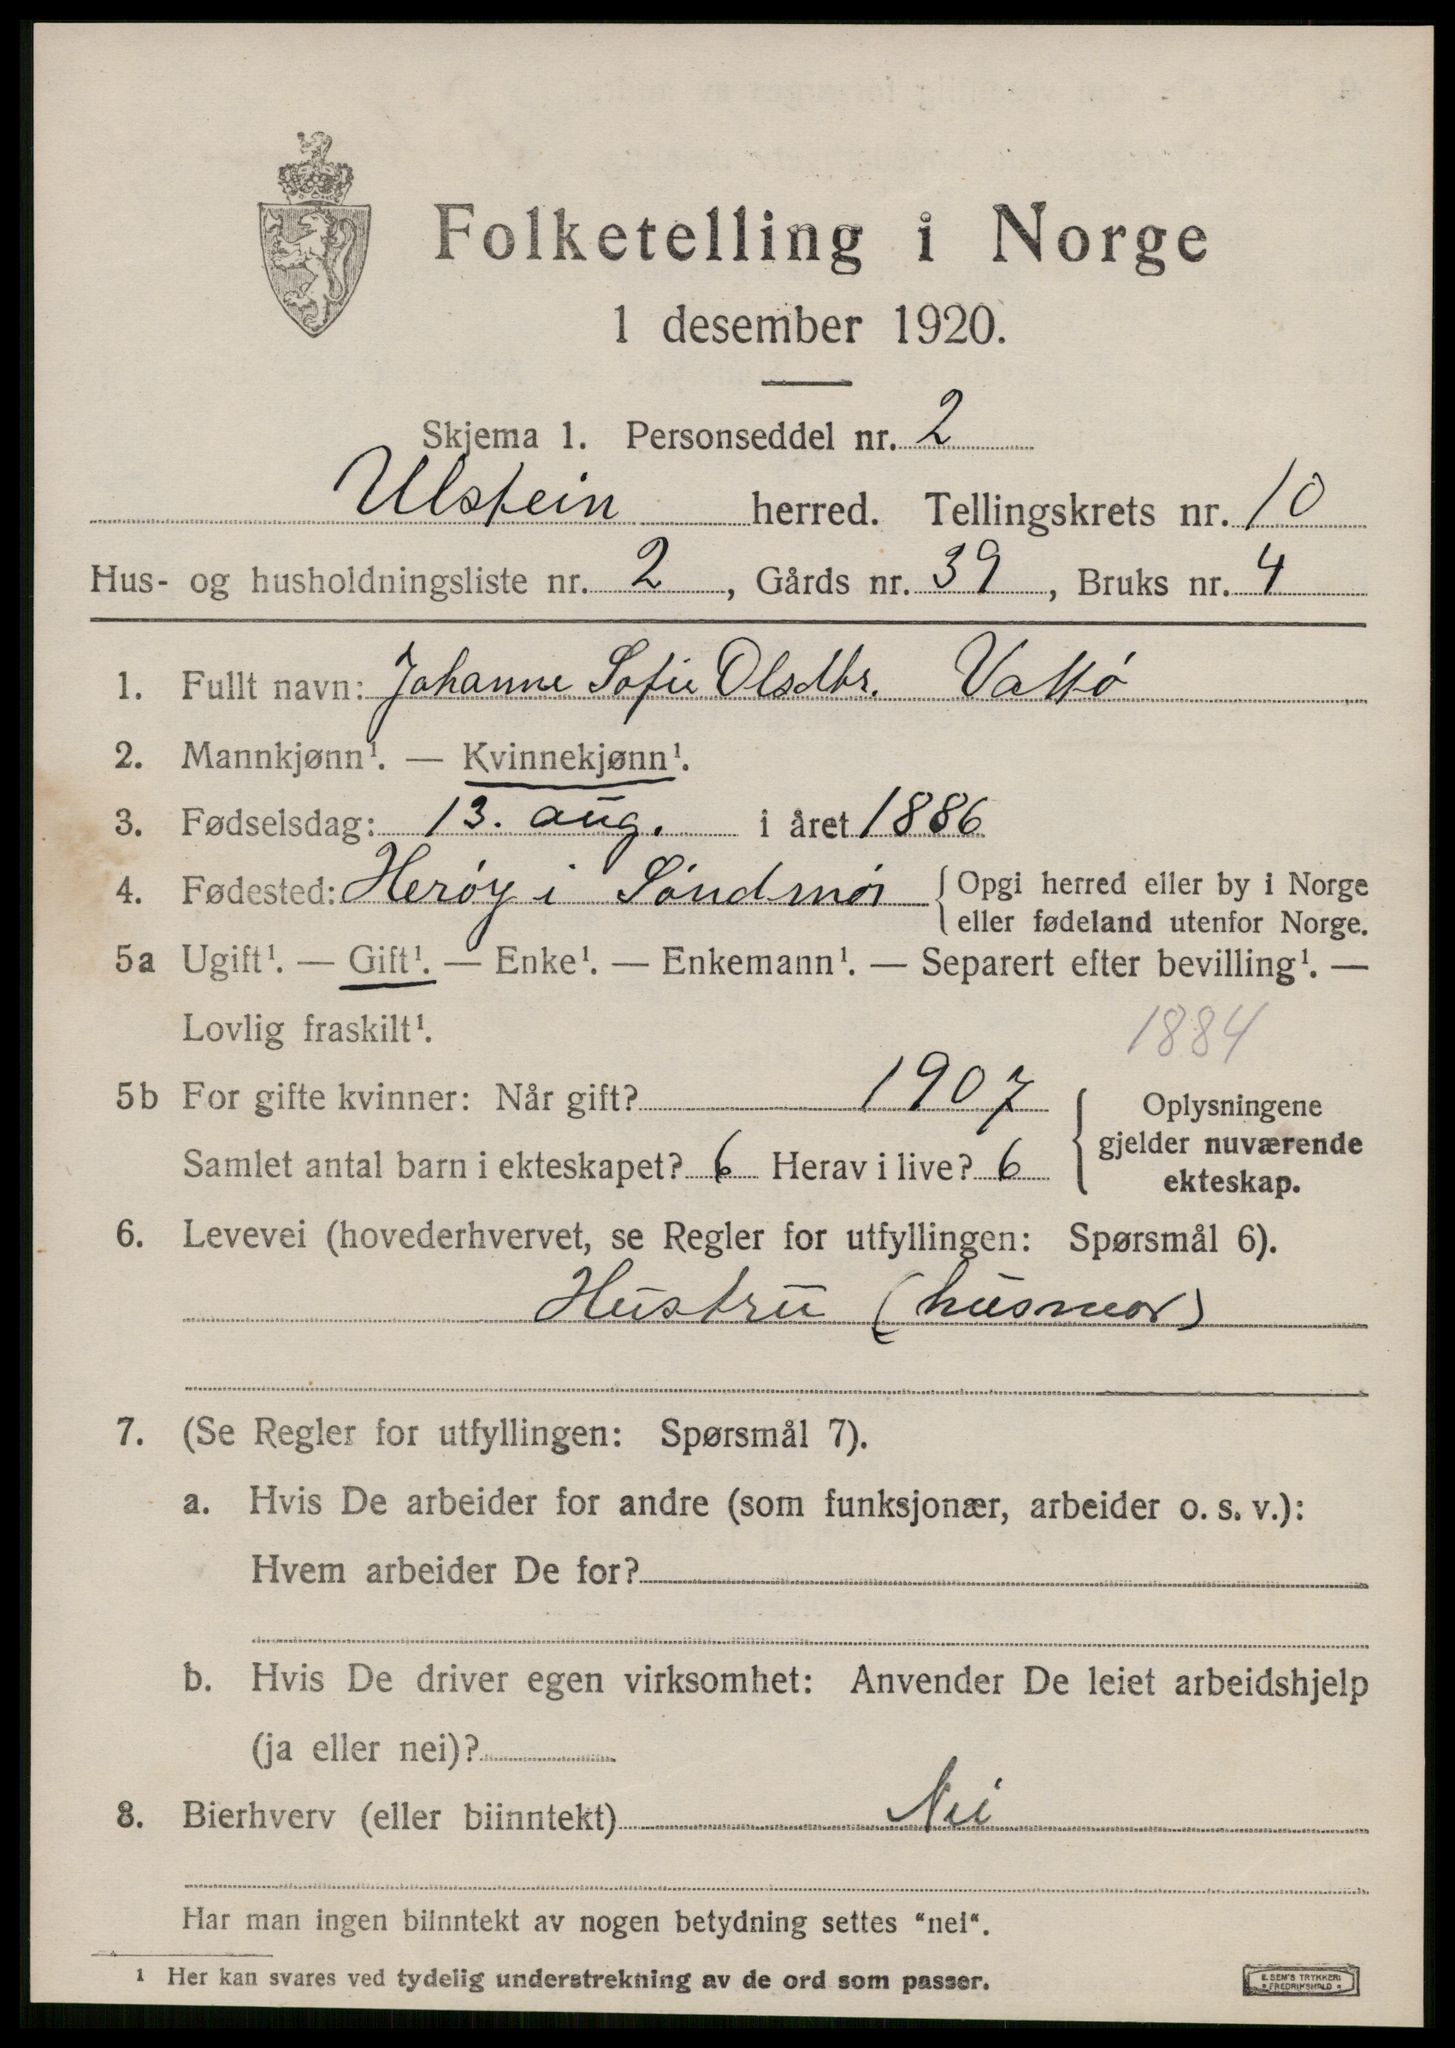 Folketelling i Norge
1 desember 1920.
Skjema 1. Personseddel nr. 2
Ulstein herred. Tellingskrets nr. 10
Hus- og husholdningsliste nr. 2, Gårds nr. 39, Bruks nr. 4
1. Fullt navn: Johanne Sofie Olsdtr. Vattö
2. Mannkjønn¹. — Kvinnekjønn¹.
3. Fødselsdag: 13. aug. i året 1886
4. Fødested: Heröy i Söndmör {Opgi herred eller by i Norge
eller fødeland utenfor Norge.
5a Ugift¹. — Gift¹. — Enke¹. — Enkemann¹. — Separert efter bevilling¹. —
Lovlig fraskilt¹.
1884
5b For gifte kvinner: Når gift? 1907
Samlet antal barn i ekteskapet? 6 Herav i live? 6
{Oplysningene
gjelder nuværende
ekteskap.
6. Levevei (hovederhvervet, se Regler for utfyllingen: Spørsmål 6).
Hustru (husmor)
7. (Se Regler for utfyllingen: Spørsmål 7).
a. Hvis De arbeider for andre (som funksjonær, arbeider o. s. v.):
Hvem arbeider De for?
b. Hvis De driver egen virksomhet: Anvender De leiet arbeidshjelp
(ja eller nei)?
8. Bierhverv (eller biinntekt) Nei
Har man ingen biinntekt av nogen betydning settes "nei".
¹ Her kan svares ved tydelig understrekning av de ord som passer.
E. SEM'S TRYKKERI
FREDRIKSHALD